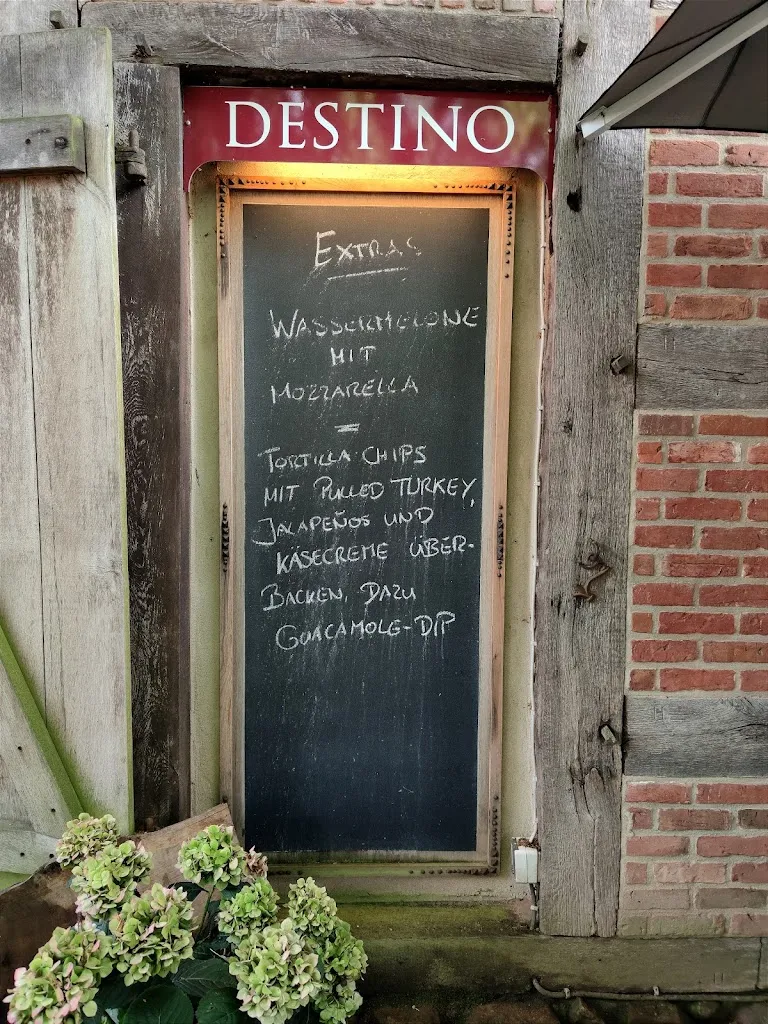 DESTINO
EXTRAS
WASSERMELONE
MIT
MOZZARELLA
=
TORTILLA CHIPS
MIT PULLED TURKEY,
JALAPEÑOS UND
KÄSECREME ÜBER-
BACKEN, DAZU
GUACAMOLE-DIP